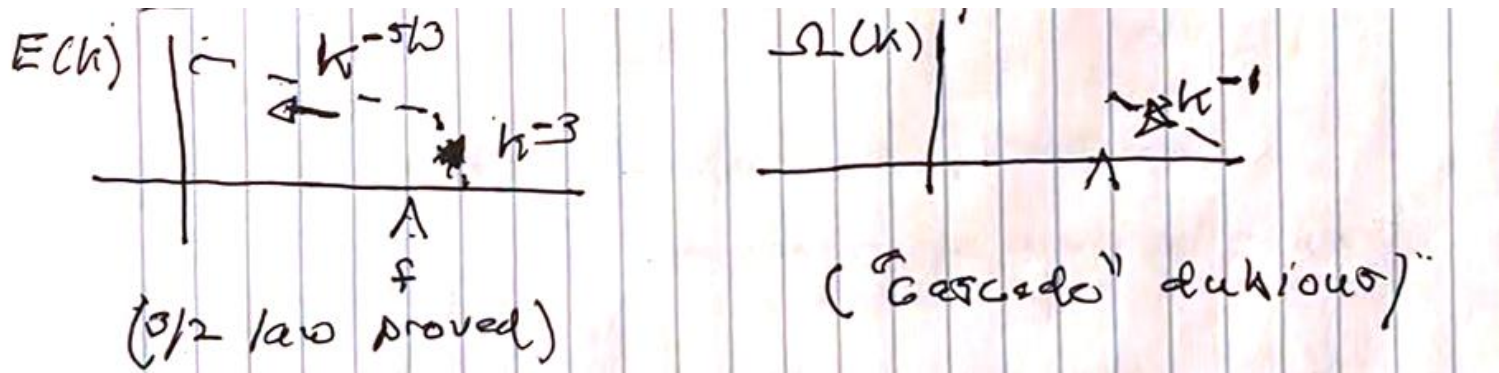 E(k)
k^-5/3
k^-3
f
(3/2 law proved)
Ω(k)
k^-1
("cascade" dubious)